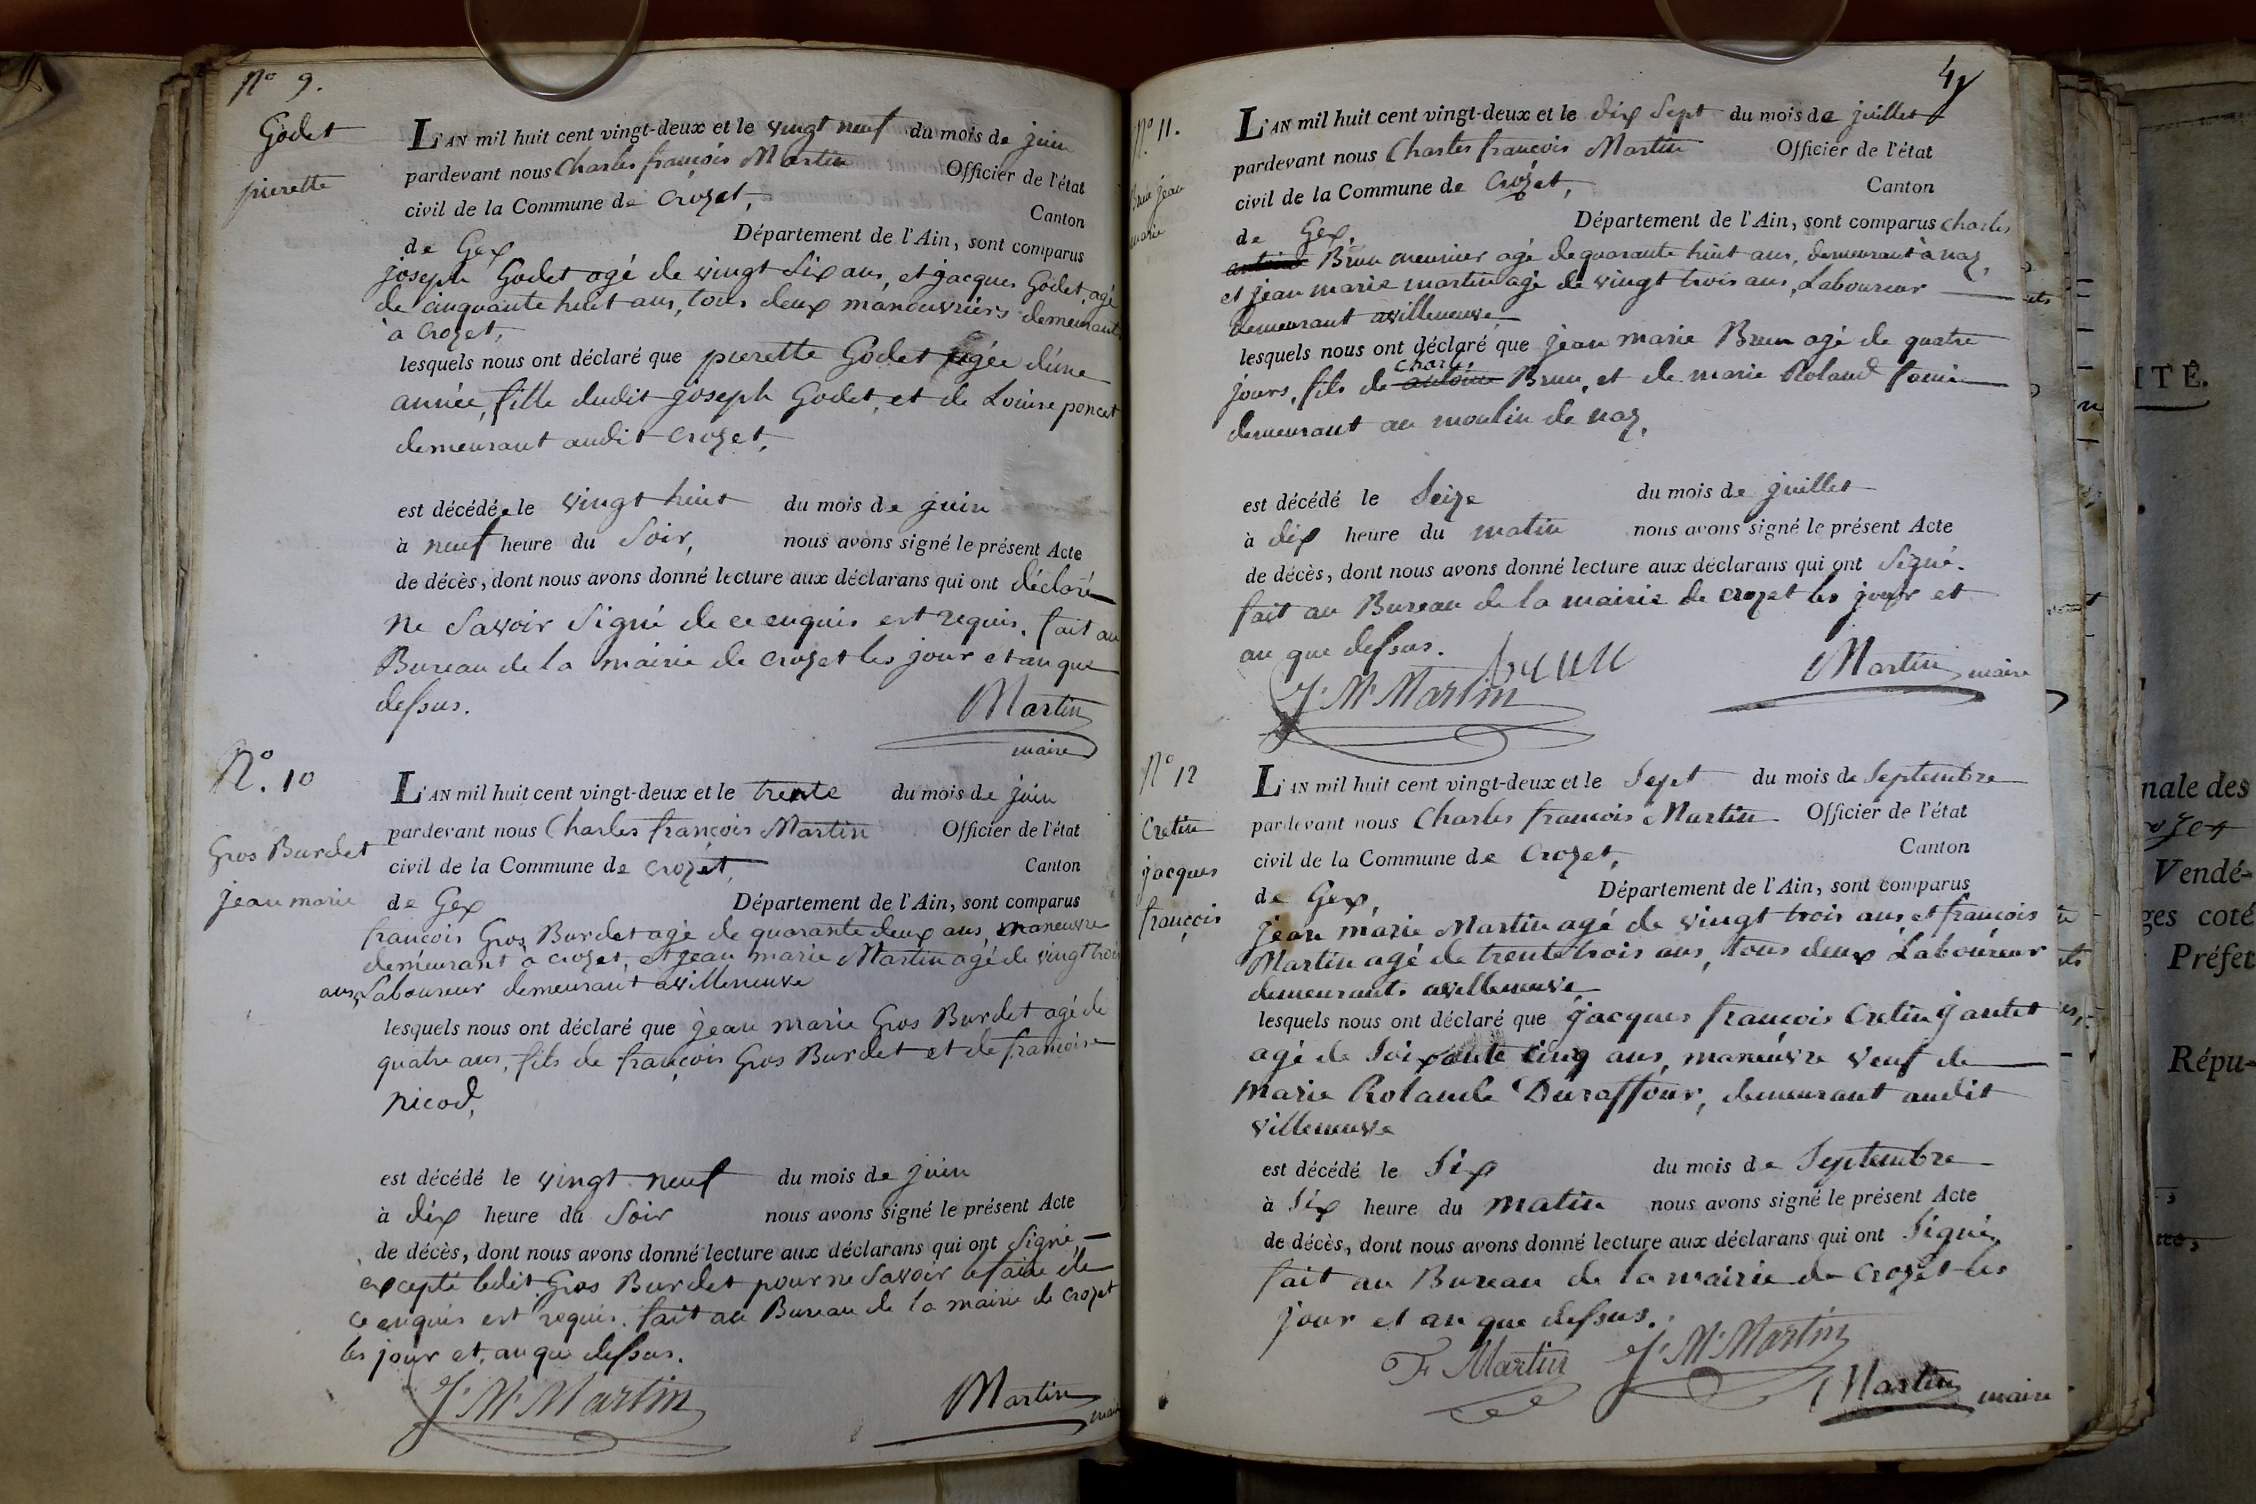 N.o 9.
Godet
pierette
L'AN mil huit cent vingt-deux et le vingt neuf du mois de juin
pardevant nous Charles françois Martin Officier de l'état
civil de la Commune de Crozet, Canton
de Gex Département de l'Ain, sont comparus
joseph Godet agé de vingt six ans, et jacques Godet, agé
de cinquante huit ans, tous deux manouvriers demeurant
à Crozet,
lesquels nous ont déclaré que pierette Godet agée d'une
année, fille dudit joseph Godet, et de Louise poncet
demeurant audit Crozet,
est décédée le vingt huit du mois de juin
à neuf heure du Soir, nous avons signé le présent Acte
de décès, dont nous avons donné lecture aux déclarans qui ont déclaré
ne Savoir Signé de ce enquis est requis. fait au
Bureau de la mairie de Crozet les jour et an que
dessus.
Martin
maire
N.o 10
Gros Burdet
jean marie
L'AN mil huit cent vingt-deux et le trente du mois de juin
pardevant nous Charles françois Martin Officier de l'état
civil de la Commune de Crozet, Canton
de Gex Département de l'Ain, sont comparus
françois Gros Burdet agé de quarante deux ans, maneuvre
demeurant à crozet, et jean marie Martin agé de vingt trois
ans, Laboureur demeurant avilleneuve
lesquels nous ont déclaré que jean marie Gros Burdet agé de
quatre ans, fils de françois Gros Burdet et de françoise
nicod,
est décédé le vingt neuf du mois de juin
à dix heure du Soir nous avons signé le présent Acte
de décès, dont nous avons donné lecture aux déclarans qui ont Signé,
excepté ledit Gros Burdet pour ne Savoir le faire de
ce enquis est requis. fait au Bureau de la mairie de Crozet
les jour et an que dessus.
J. M. Martin Martin
maire
N.o 11.
Brun jean
marie
L'AN mil huit cent vingt-deux et le dix Sept du mois de juillet
pardevant nous Charles françois Martin Officier de l'état
civil de la Commune de Crozet, Canton
de Gex, Département de l'Ain, sont comparus charles
antoine Brun meunier agé de quarante huit ans, demeurant à naz,
et jean marie martin agé de vingt trois ans, Laboureur
demeurant avilleneuve
lesquels nous ont déclaré que jean marie Brun agé de quatre
charle
jours, fils de antoine Brun, et de marie Roland
demeurant au moulin de naz,
est décédé le Seize du mois de juillet
à dix heure du matin nous avons signé le présent Acte
de décès, dont nous avons donné lecture aux déclarans qui ont Signé.
fait au Bureau de la mairie de crozet les jour et
an que dessus.
brun
J. M. Martin Martin maire
N.o 12
Cretin
jacques
françois
L'AN mil huit cent vingt-deux et le Sept du mois de Septembre
pardevant nous Charles françois Martin Officier de l'état
civil de la Commune de Crozet, Canton
de Gex, Département de l'Ain, sont comparus
jean marie Martin agé de vingt trois ans, et françois
Martin agé de trente trois ans, tous deux Laboureur
demeurants avilleneuve
lesquels nous ont déclaré que jacques françois Cretin jantet
agé de Soixante cinq ans, maneuvre veuf de
marie Rolande Duraffour, demeurant audit
villeneuve
est décédé le Six du mois de Septembre
à Six heure du matin nous avons signé le présent Acte
de décès, dont nous avons donné lecture aux déclarans qui ont Signé,
fait au Bureau de la mairie de Crozet les
jour et an que dessus.
F Martin J. M. Martin
Martin maire
ITÉ.
nale des
Vendé-
ges coté
Préfet
Répu-